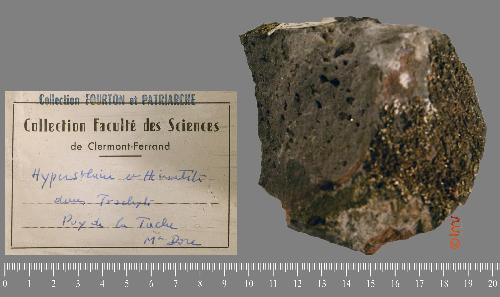 Collection FOURTON et PATRIARCHE
Collection Faculté des Sciences
de Clermont-Ferrand
Hypersthène et hématite
dans Trachyte
Puy de la Tache
Mt Dore
© lmv
0 1 2 3 4 5 6 7 8 9 10 11 12 13 14 15 16 17 18 19 20